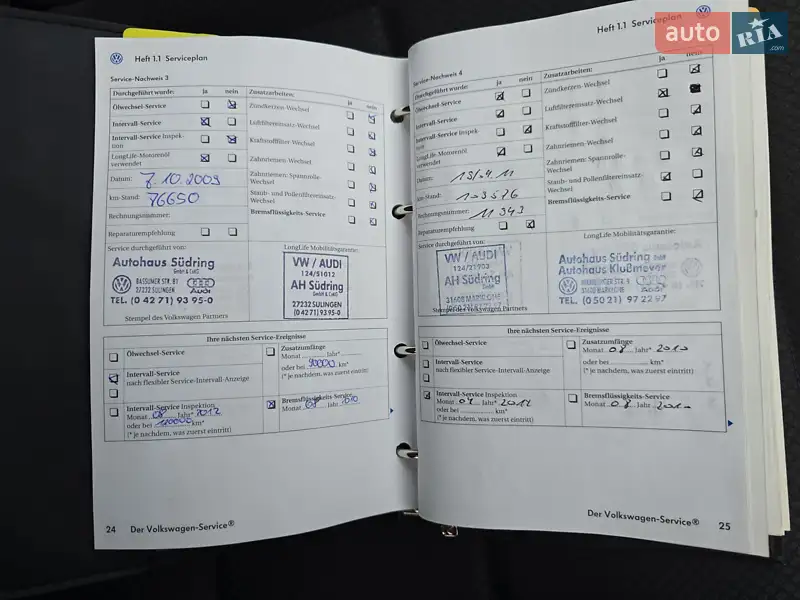 Heft 1.1 Serviceplan
Service-Nachweis 3
Durchgeführt wurde: ja nein Zusatzarbeiten: ja nein
Ölwechsel-Service
Intervall-Service
Intervall-Service Inspek-
tion
LongLife-Motorenöl
verwendet
Zündkerzen-Wechsel
Luftfiltereinsatz-Wechsel
Kraftstofffilter-Wechsel
Zahnriemen-Wechsel
Zahnriemen: Spannrolle-
Wechsel
Staub- und Pollenfiltereinsatz-
Wechsel
Bremsflüssigkeits-Service
Datum: 7.10.2009
km-Stand: 76650
Rechnungsnummer:
Reparaturempfehlung
Service durchgeführt von:
Autohaus Südring
GmbH & CoKG
BASSUMER STR. 81
27232 SULINGEN
Audi
TEL. (0 42 71) 93 95-0
LongLife Mobilitätsgarantie:
VW / AUDI
124/51012
AH Südring
GmbH & CoKG
27232 SULINGEN
(0 42 71) 93 95-0
Stempel des Volkswagen Partners
Ihre nächsten Service-Ereignisse
Ölwechsel-Service
Intervall-Service
nach flexibler Service-Intervall-Anzeige
Intervall-Service Inspektion
Monat 08 Jahr* 2012
oder bei km*
(* je nachdem, was zuerst eintritt)
Zusatzumfänge
Monat Jahr*
oder bei 90000 km*
(* je nachdem, was zuerst eintritt)
Bremsflüssigkeits-Service
Monat 08 Jahr 010
24 Der Volkswagen-Service®
Heft 1.1 Serviceplan
Service-Nachweis 4
Durchgeführt wurde: ja nein Zusatzarbeiten: ja nein
Ölwechsel-Service
Intervall-Service
Intervall-Service Inspek-
tion
LongLife-Motorenöl
verwendet
Zündkerzen-Wechsel
Luftfiltereinsatz-Wechsel
Kraftstofffilter-Wechsel
Zahnriemen-Wechsel
Zahnriemen: Spannrolle-
Wechsel
Staub- und Pollenfiltereinsatz-
Wechsel
Bremsflüssigkeits-Service
Datum:
km-Stand: 103576
Rechnungsnummer: 11 343
Reparaturempfehlung
Service durchgeführt von:
VW / AUDI
AH Südring
GmbH & CoKG
LongLife Mobilitätsgarantie:
Autohaus Südring
Autohaus Klußmeyer
Audi
TEL. (0 50 21) 97 22 97
Stempel des Volkswagen Partners
Ihre nächsten Service-Ereignisse
Ölwechsel-Service
Intervall-Service
nach flexibler Service-Intervall-Anzeige
Intervall-Service Inspektion
Monat Jahr* 2012
oder bei km*
(* je nachdem, was zuerst eintritt)
Zusatzumfänge
Monat 08 Jahr* 2010
oder bei km*
(* je nachdem, was zuerst eintritt)
Bremsflüssigkeits-Service
Monat 08 Jahr 2010
Der Volkswagen-Service® 25
auto RIA
.com